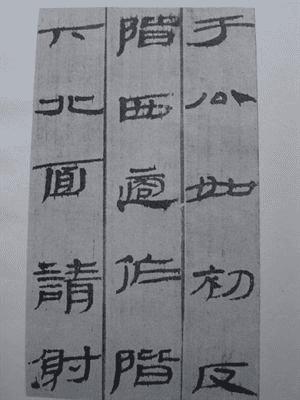 于公如初反
階西適作階
下北面請射